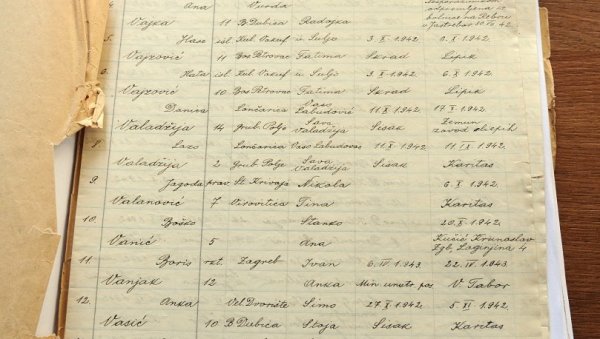 4. Ana Vurda
Vajka 11 B. Dubica Radojka
5. Hase isl Kul. Vakuf u. Suljo 3. X. 1942. 9. X. 1942.
Vajzović 11 Bos. Petrovac Fatima Skrad Lipik
6. Hata isl. Kul. Vakuf u. Suljo 3. X. 1942. 6. X. 1942.
Vajzović 10 Bos. Petrovac Fatima Skrad Lipik
Danica Lončarica Vaso Labudović 11. X. 1942. 17. X. 1942.
Valadžija 14 Grub. Polje Sava Valadžija Sisak Zemun zavod slijepih
8. Lazo Lončarica Vaso Labudović 11. X. 1942.
Valadžija 2 Grub. Polje Sava Valadžija Sisak Karitas
9. Jagoda prav. Nikola 6. X. 1942.
Valanović 7 Virovitica Tina Karitas
10. Boško Stanko 20. X. 1942.
Vanić 5 Ana Kučić Krunoslav Zgb. Laginjina 4
11. Boris rkt. Zagreb Ivan 6. IV. 1943. 22. IV. 1943.
Vanjak 12 Anka Min. unutr. pos. V. Tabor
12. Anka Vel. Dvorište Simo 27. X. 1942. 5. XI. 1942.
Vasić 10 B. Dubica Stoja Sisak Karitas